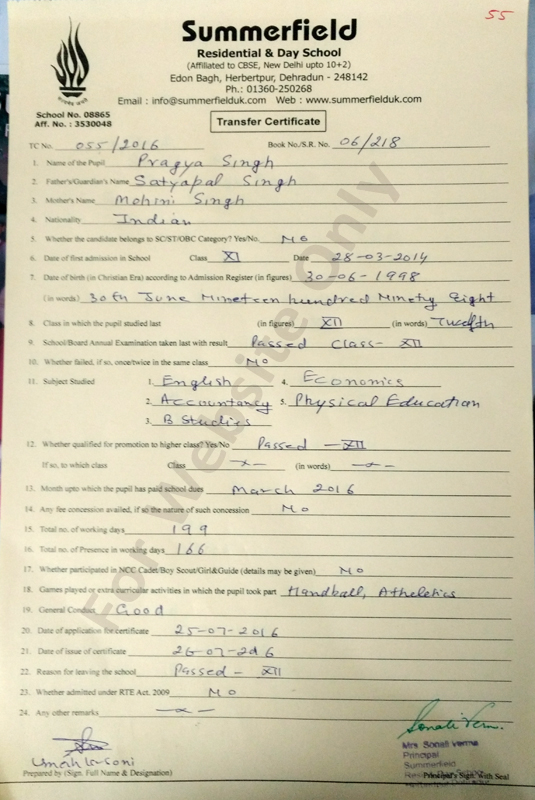 55
Summerfield
Residential & Day School
(Affiliated to CBSE, New Delhi upto 10+2)
Edon Bagh, Herbertpur, Dehradun - 248142
Ph.: 01360-250268
Email : info@summerfielduk.com Web : www.summerfielduk.com
School No. 08865
Aff. No. : 3530048
Transfer Certificate
TC No. 055/2016 Book No./S.R. No. 06/218
1. Name of the Pupil Pragya Singh
2. Father's/Guardian's Name Satyapal Singh
3. Mother's Name Mohini Singh
4. Nationality Indian
5. Whether the candidate belongs to SC/ST/OBC Category? Yes/No. No
6. Date of first admission in School Class XI Date 28-03-2014
7. Date of birth (in Christian Era) according to Admission Register (in figures) 30-06-1998
(in words) 30th June Nineteen hundred Ninety Eight
8. Class in which the pupil studied last (in figures) XII (in words) Twelfth
9. School/Board Annual Examination taken last with result Passed Class- XII
10. Whether failed, if so, once/twice in the same class No
11. Subject Studied 1. English 4. Economics
2. Accountancy 5. Physical Education
3. B Studies
12. Whether qualified for promotion to higher class? Yes/No Passed - XII
If so, to which class Class -x- (in words) -x-
13. Month upto which the pupil has paid school dues March 2016
14. Any fee concession availed, if so the nature of such concession No
15. Total no. of working days 199
16. Total no. of Presence in working days 166
17. Whether participated in NCC Cadet/Boy Scout/Girl&Guide (details may be given) No
18. Games played or extra curricular activities in which the pupil took part Handball, Atheletics
19. General Conduct Good
20. Date of application for certificate 25-07-2016
21. Date of issue of certificate 26-07-2016
22. Reason for leaving the school Passed - XII
23. Whether admitted under RTE Act, 2009 No
24. Any other remarks -x-
For Website Only
Sonali Verma
Mrs. Sonali Verma
Principal
Summerfield
Prepared by (Sign. Full Name & Designation) Principal's Sign. with Seal